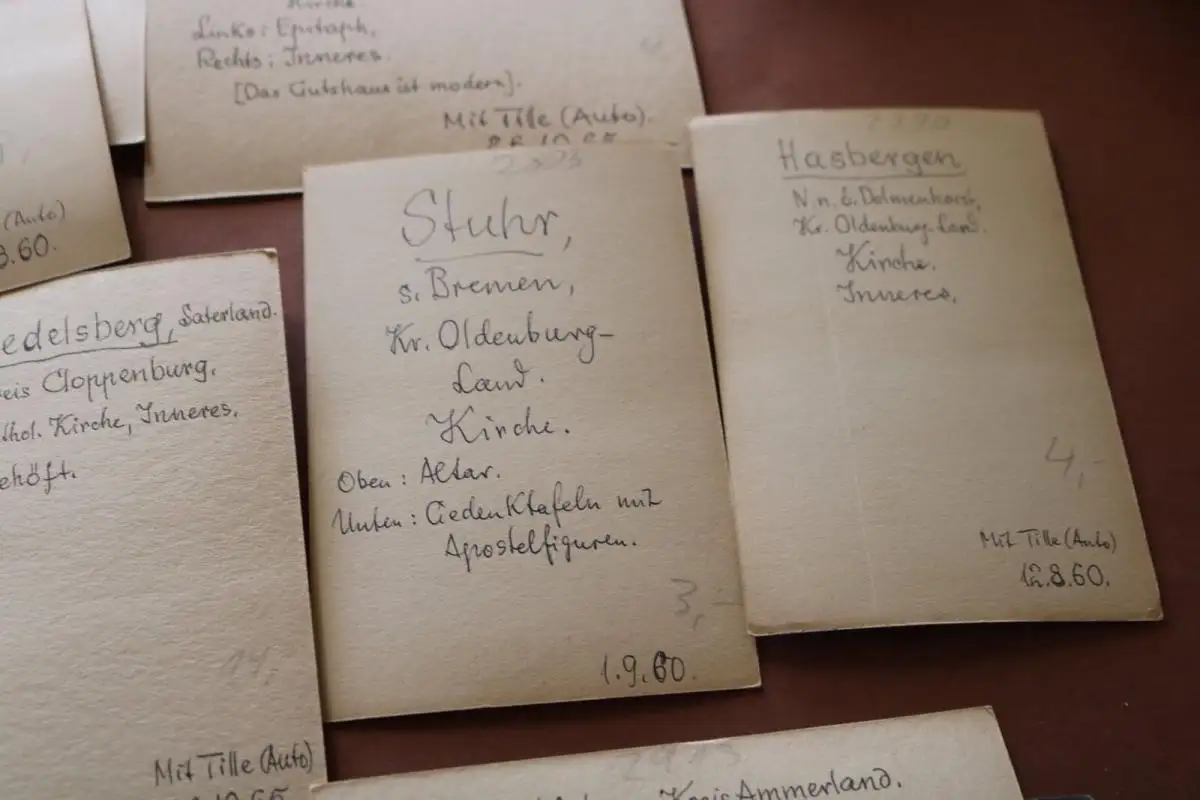 Kirche.
Links: Epitaph,
Rechts: Inneres.
[Das Gutshaus ist modern].
Mit Tille (Auto).
26.10.65
(Auto)
8.60.
edelsberg, Saterland.
eis Cloppenburg,
thol. Kirche, Inneres,
ehöft.
14,-
Mit Tille (Auto)
10.65
Stuhr,
s. Bremen,
Kr. Oldenburg-
Land.
Kirche.
Oben: Altar.
Unten: Gedenktafeln mit
Apostelfiguren.
3,-
1.9.60.
Hasbergen
N.n.ö. Delmenhorst,
Kr. Oldenburg-Land.
Kirche.
Inneres,
4,-
Mit Tille (Auto)
12.8.60.
2913
Kreis Ammerland.